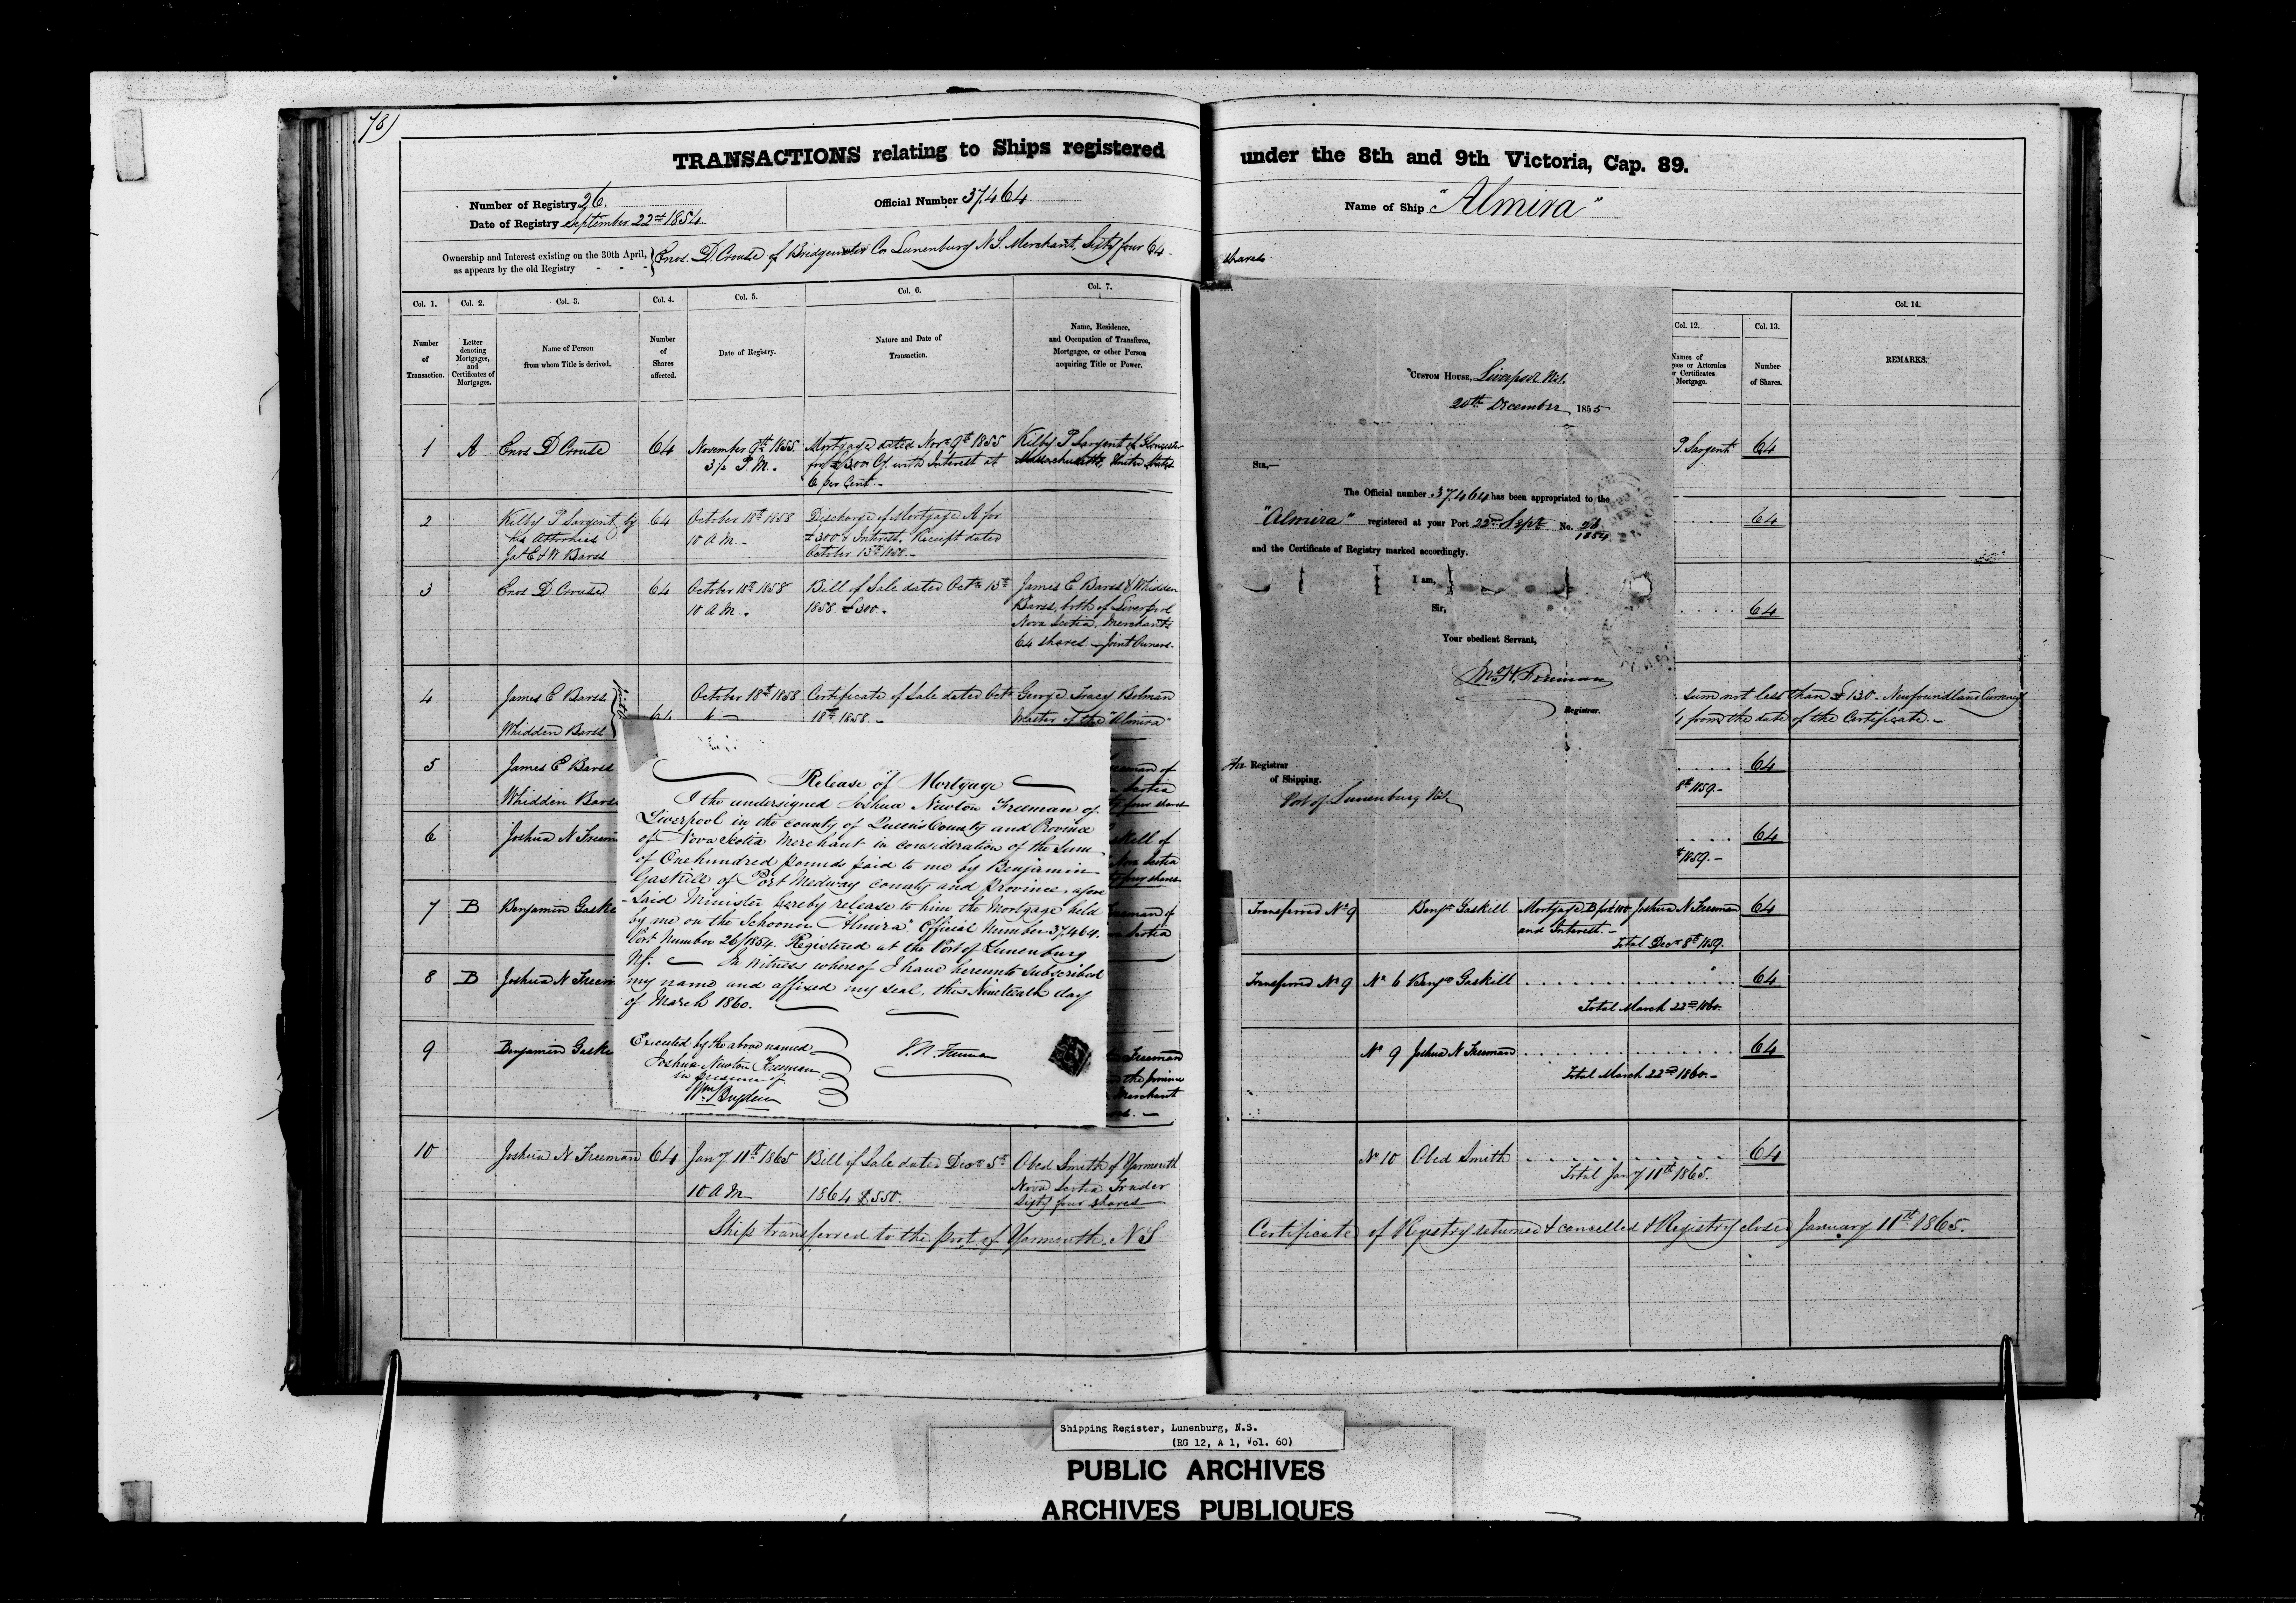 78)
TRANSACTIONS relating to Ships registered under the 8th and 9th Victoria, Cap. 89.
Number of Registry 26.
Official Number 37.464
Name of Ship "Almira"
Date of Registry September 22nd 1854.
Ownership and Interest existing on the 30th April, as appears by the old Registry - - -
Enos. D. Crouse of Bridgewater Co Lunenburg N.S. Merchant, Sixty four 64 shares
Col. 1.
Number of Transaction.
Col. 2.
Letter denoting Mortgages, and Certificates of Mortgages.
Col. 3.
Name of Person from whom Title is derived.
Col. 4.
Number of Shares affected.
Col. 5.
Date of Registry.
Col. 6.
Nature and Date of Transaction.
Col. 7.
Name, Residence, and Occupation of Transferee, Mortgagee, or other Person acquiring Title or Power.
1 A Enos D Crouse 64
November 9th 1855.
3½ P.M.
Mortgage dated Novr. 9th 1855
for £300 Cy. with Interest at
6 per Cent.-
Kilby P Sargent of Gloucester
Massachusetts, United States
2 Kilby P Sargent by
his Attornies
Ja. E & W Barss
64
October 18th 1858
10 A.M.-
Discharge of Mortgage A for
£300 & Interest. Receipt dated
October 13th 1858.-
3 Enos D Crouse 64
October 18th 1858
10 A.M.
Bill of Sale dated Octr. 13th
1858 £300.
James E Barss & Whidden
Barss, both of Liverpool
Nova Scotia, Merchants
64 shares - Joint Owners.
4 James E Barss
Whidden Barss
64
October 18th 1858
Certificate of Sale dated Octr.
18th 1858.-
George Tracey
Master of the "Almira"
5 James E Barss
Whidden Barss
6 Joshua N Freem
7 B Benjamin Gaske
8 B Joshua N Freem
9 Benjamin Gaske
10 Joshua N Freeman 64
Jany 11th 1865
10 A M
Bill of Sale dated Decr. 5th
1864 £550.
Obed Smith of Yarmouth
Nova Scotia Trader
Sixty four shares
Ship transferred to the port of Yarmouth. N S
Release of Mortgage
I the undersigned Joshua Newton Freeman of
Liverpool in the county of Queen's County and Province
of Nova Scotia Merchant in consideration of the Sum
of One hundred pounds paid to me by Benjamin
Gaskill of Port Medway County and province afore
-Said Minister hereby release to him the Mortgage held
by me on the Schooner "Almira" Official Number 37.464.
Port Number 26/1854. Registered at the Port of Lunenburg
NS. In witness whereof I have hereunto Subscribed
my name and affixed my seal, this Nineteenth day
of March 1860.
Executed by the above named
Joshua Newton Freeman
in presence of
J. N. Freeman
CUSTOM HOUSE, Liverpool N.S.
20th December 1855
SIR,—
The Official number 37.464 has been appropriated to the
"Almira" registered at your Port 22nd Septr No. 26
1854
and the Certificate of Registry marked accordingly.
I am,
Sir,
Your obedient Servant,
Registrar.
Registrar
of Shipping.
Port of Lunenburg N.S.
Col. 12.
Names of
ees or Attornies
r Certificates
Mortgage.
Col. 13.
Number
of Shares.
Col. 14.
REMARKS.
P. Sargent 64
64
64
sum not less than £130.- Newfoundland Currency
from the date of the Certificate.-
64
8th 1859.-
64
th 1859.-
Transferred No 9 Benjn Gaskill Mortgage B for £100 Joshua N Freeman 64
and Interest.-
Total Decr 8th 1859.
Transferred No 9 No 6 Benjn Gaskill 64
Total March 22nd 1860.
No 9 Joshua N Freeman 64
Total March 22nd 1860.-
No 10 Obed Smith 64
Total Jany 11th 1865.
Certificate of Registry returned & cancelled & Registry closed January 11th 1865.
Shipping Register, Lunenburg, N.S.
(RG 12, A 1, Vol. 60)
PUBLIC ARCHIVES
ARCHIVES PUBLIQUES